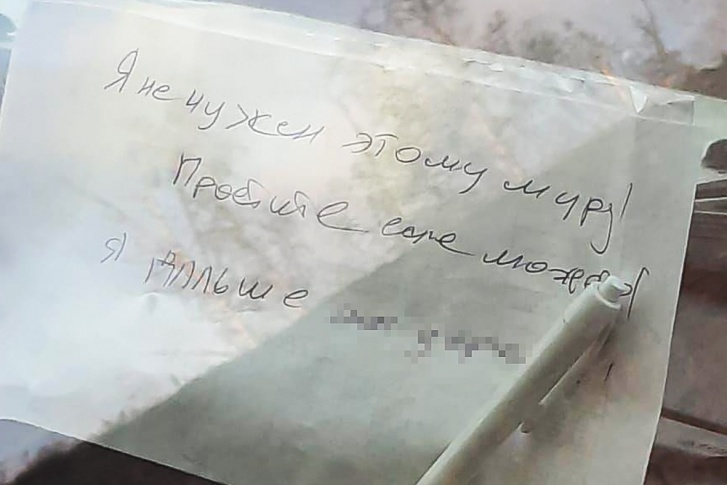 Я не нужен этому миру!
Простите если можете!
я дальше